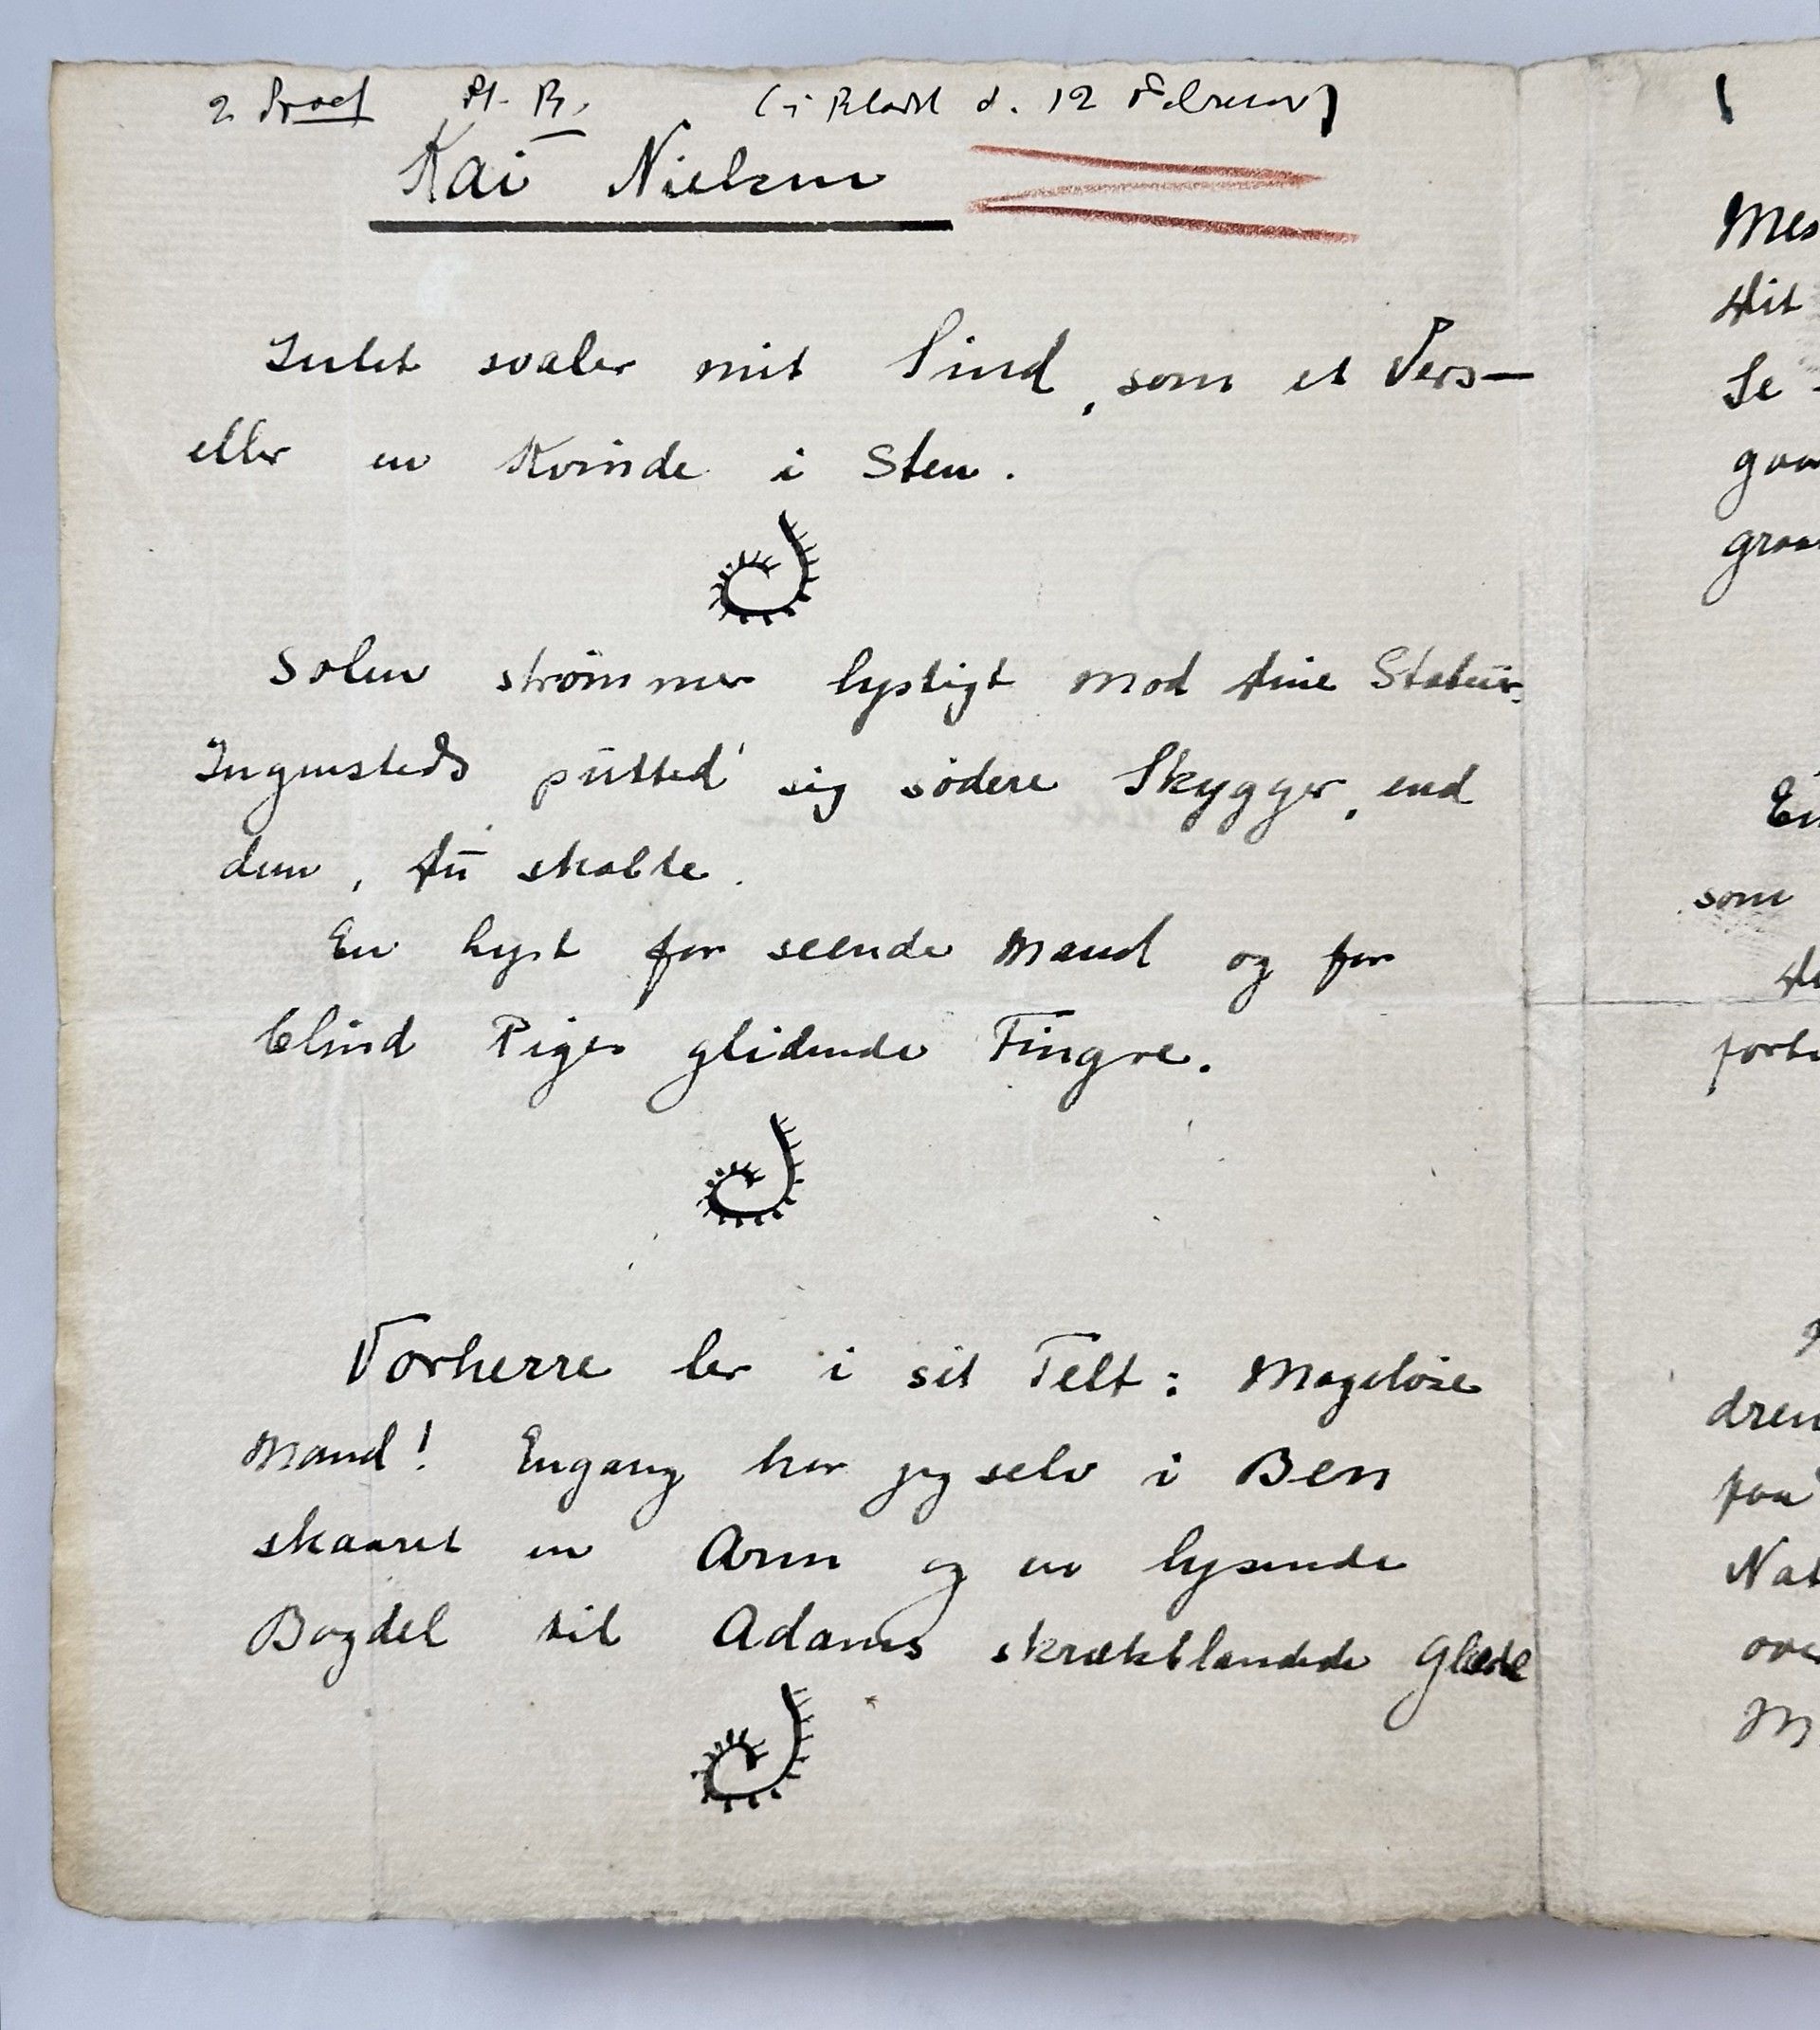 2. (i Bladet d. 12 Februar)
Kai Nielsen
Intet svaler mit Sind, som et Vers—
eller en Kvinde i Sten.
Solen strömmer lystigt mod dine Statuer.
Ingensteds putted' sig södere Skygger, end
dem, du skabte.
En Lyst for seende Mand og for
blind Piges glidende Fingre.
Vorherre ler i sit Telt: Mageløse
Mand! Engang har jeg selv i Ben
skaaret en Arm og en lysende
Bagdel til Adams skrækblandede Glæde
Mes
Dit
Se
gaa
graa
En
som
forb
dren
paa
Nat
ove
M